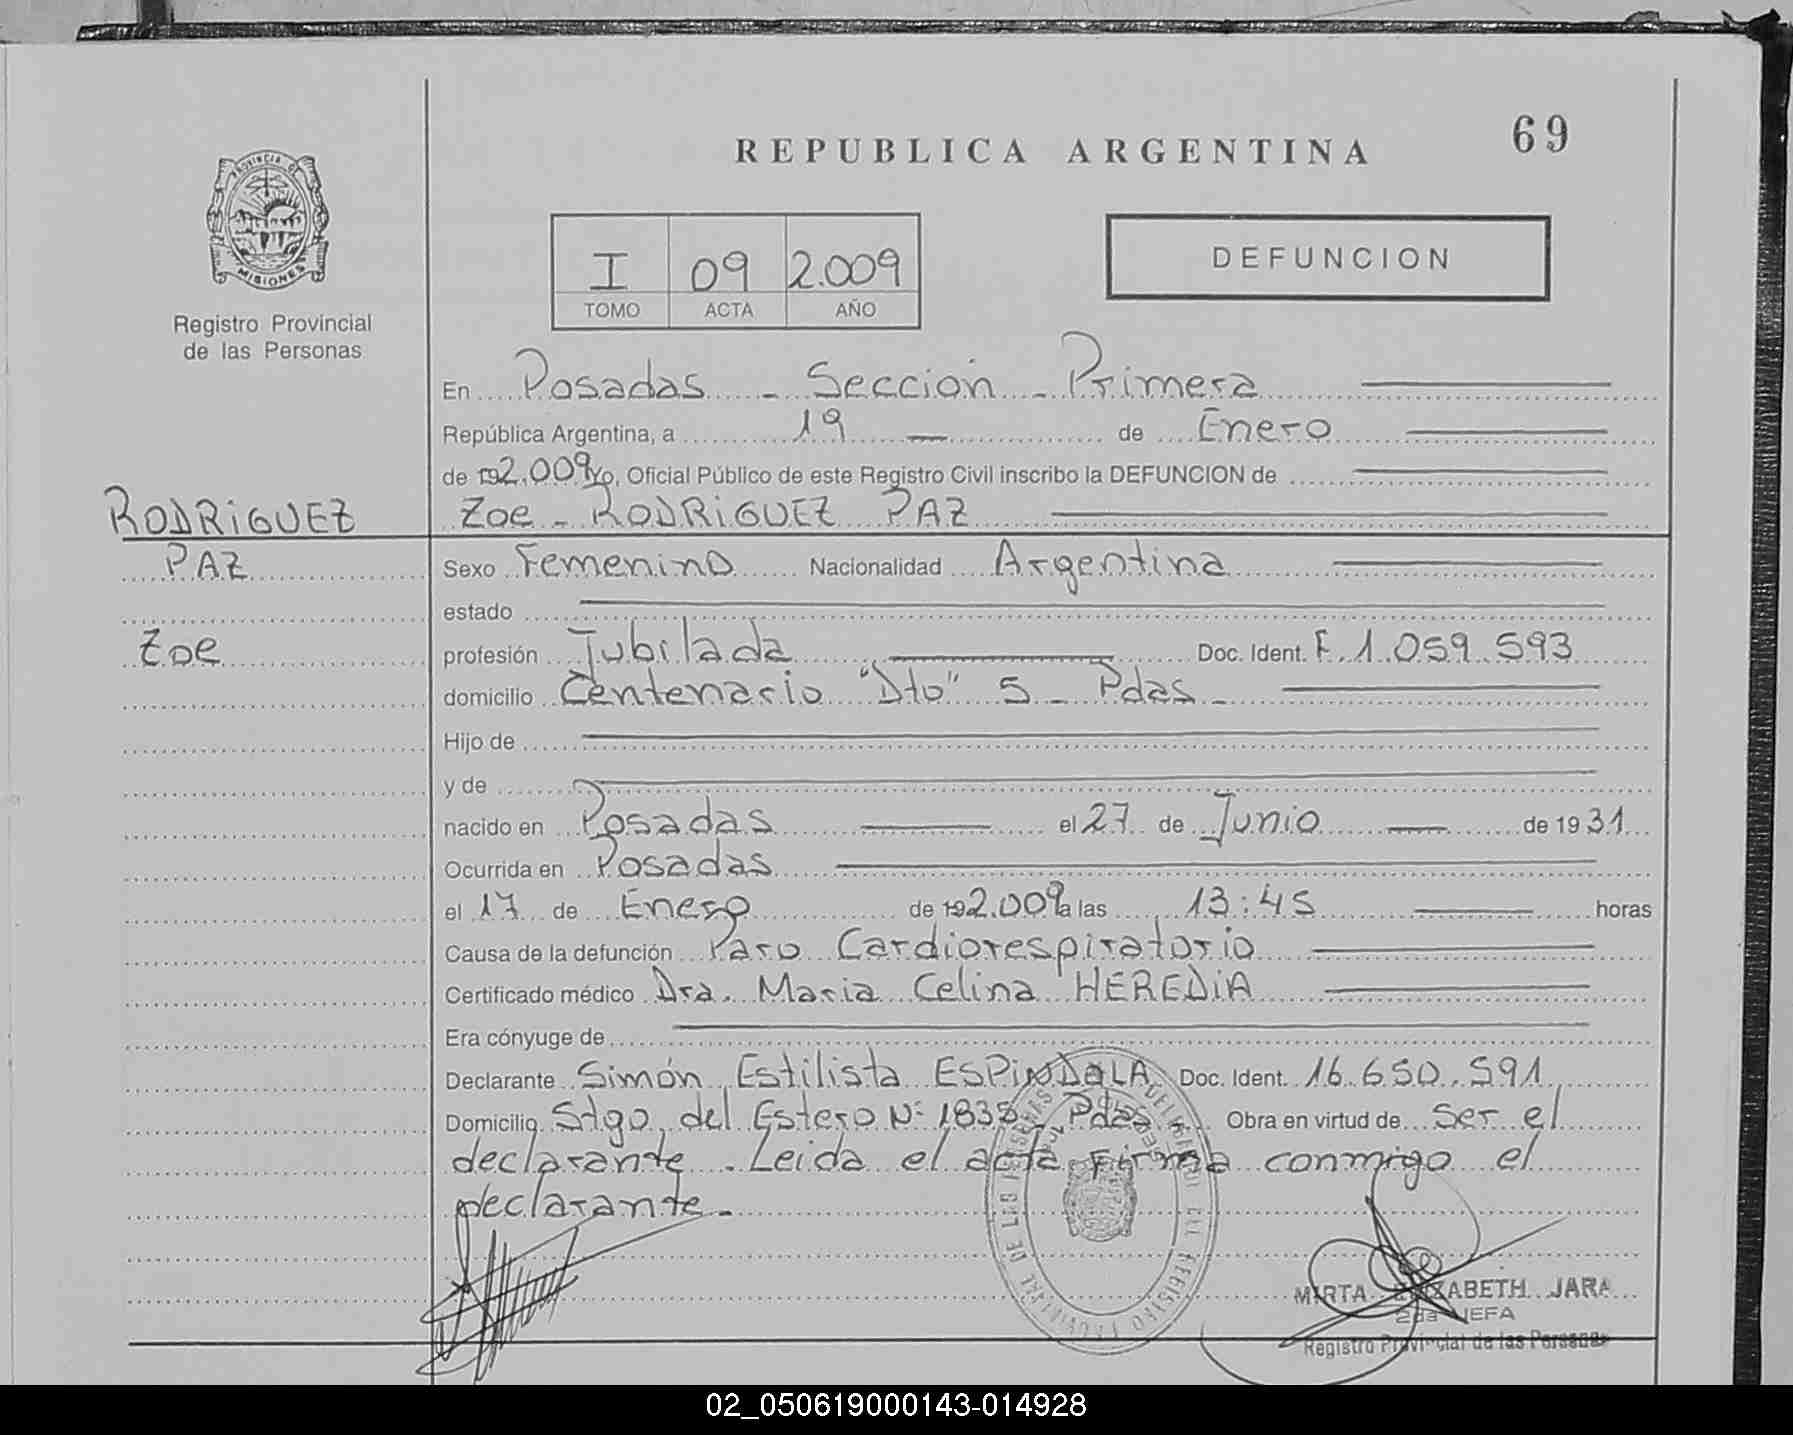 69
REPUBLICA ARGENTINA
PROVINCIA DE
MISIONES
Registro Provincial
de las Personas
I 09 2.009
TOMO ACTA AÑO
DEFUNCION
En Posadas - Sección - Primera
República Argentina, a 19 de Enero
de 192.009 Yo, Oficial Público de este Registro Civil inscribo la DEFUNCION de
RODRIGUEZ
Zoe - RODRIGUEZ PAZ
PAZ
Sexo Femenino Nacionalidad Argentina
estado
Zoe
profesión Jubilada Doc. Ident. F. 1.059.593
domicilio Centenario "Dto" 5 - Pdas -
Hijo de
y de
nacido en Posadas el 27 de Junio de 1931
Ocurrida en Posadas
el 17 de Enero de 192.009 a las 13:45 horas
Causa de la defunción Paro Cardiorespiratorio
Certificado médico Dra. Maria Celina HEREDIA
Era cónyuge de
Declarante Simón Estilista ESPINDOLA Doc. Ident. 16.650.591
Domicilio Stgo. del Estero Nº 1835 - Pdas Obra en virtud de ser el
declarante. Leida el acta Firma conmigo el
declarante -
MIRTA ELIZABETH JARA
2da JEFA
Registro Provincial de las Personas
02_050619000143-014928